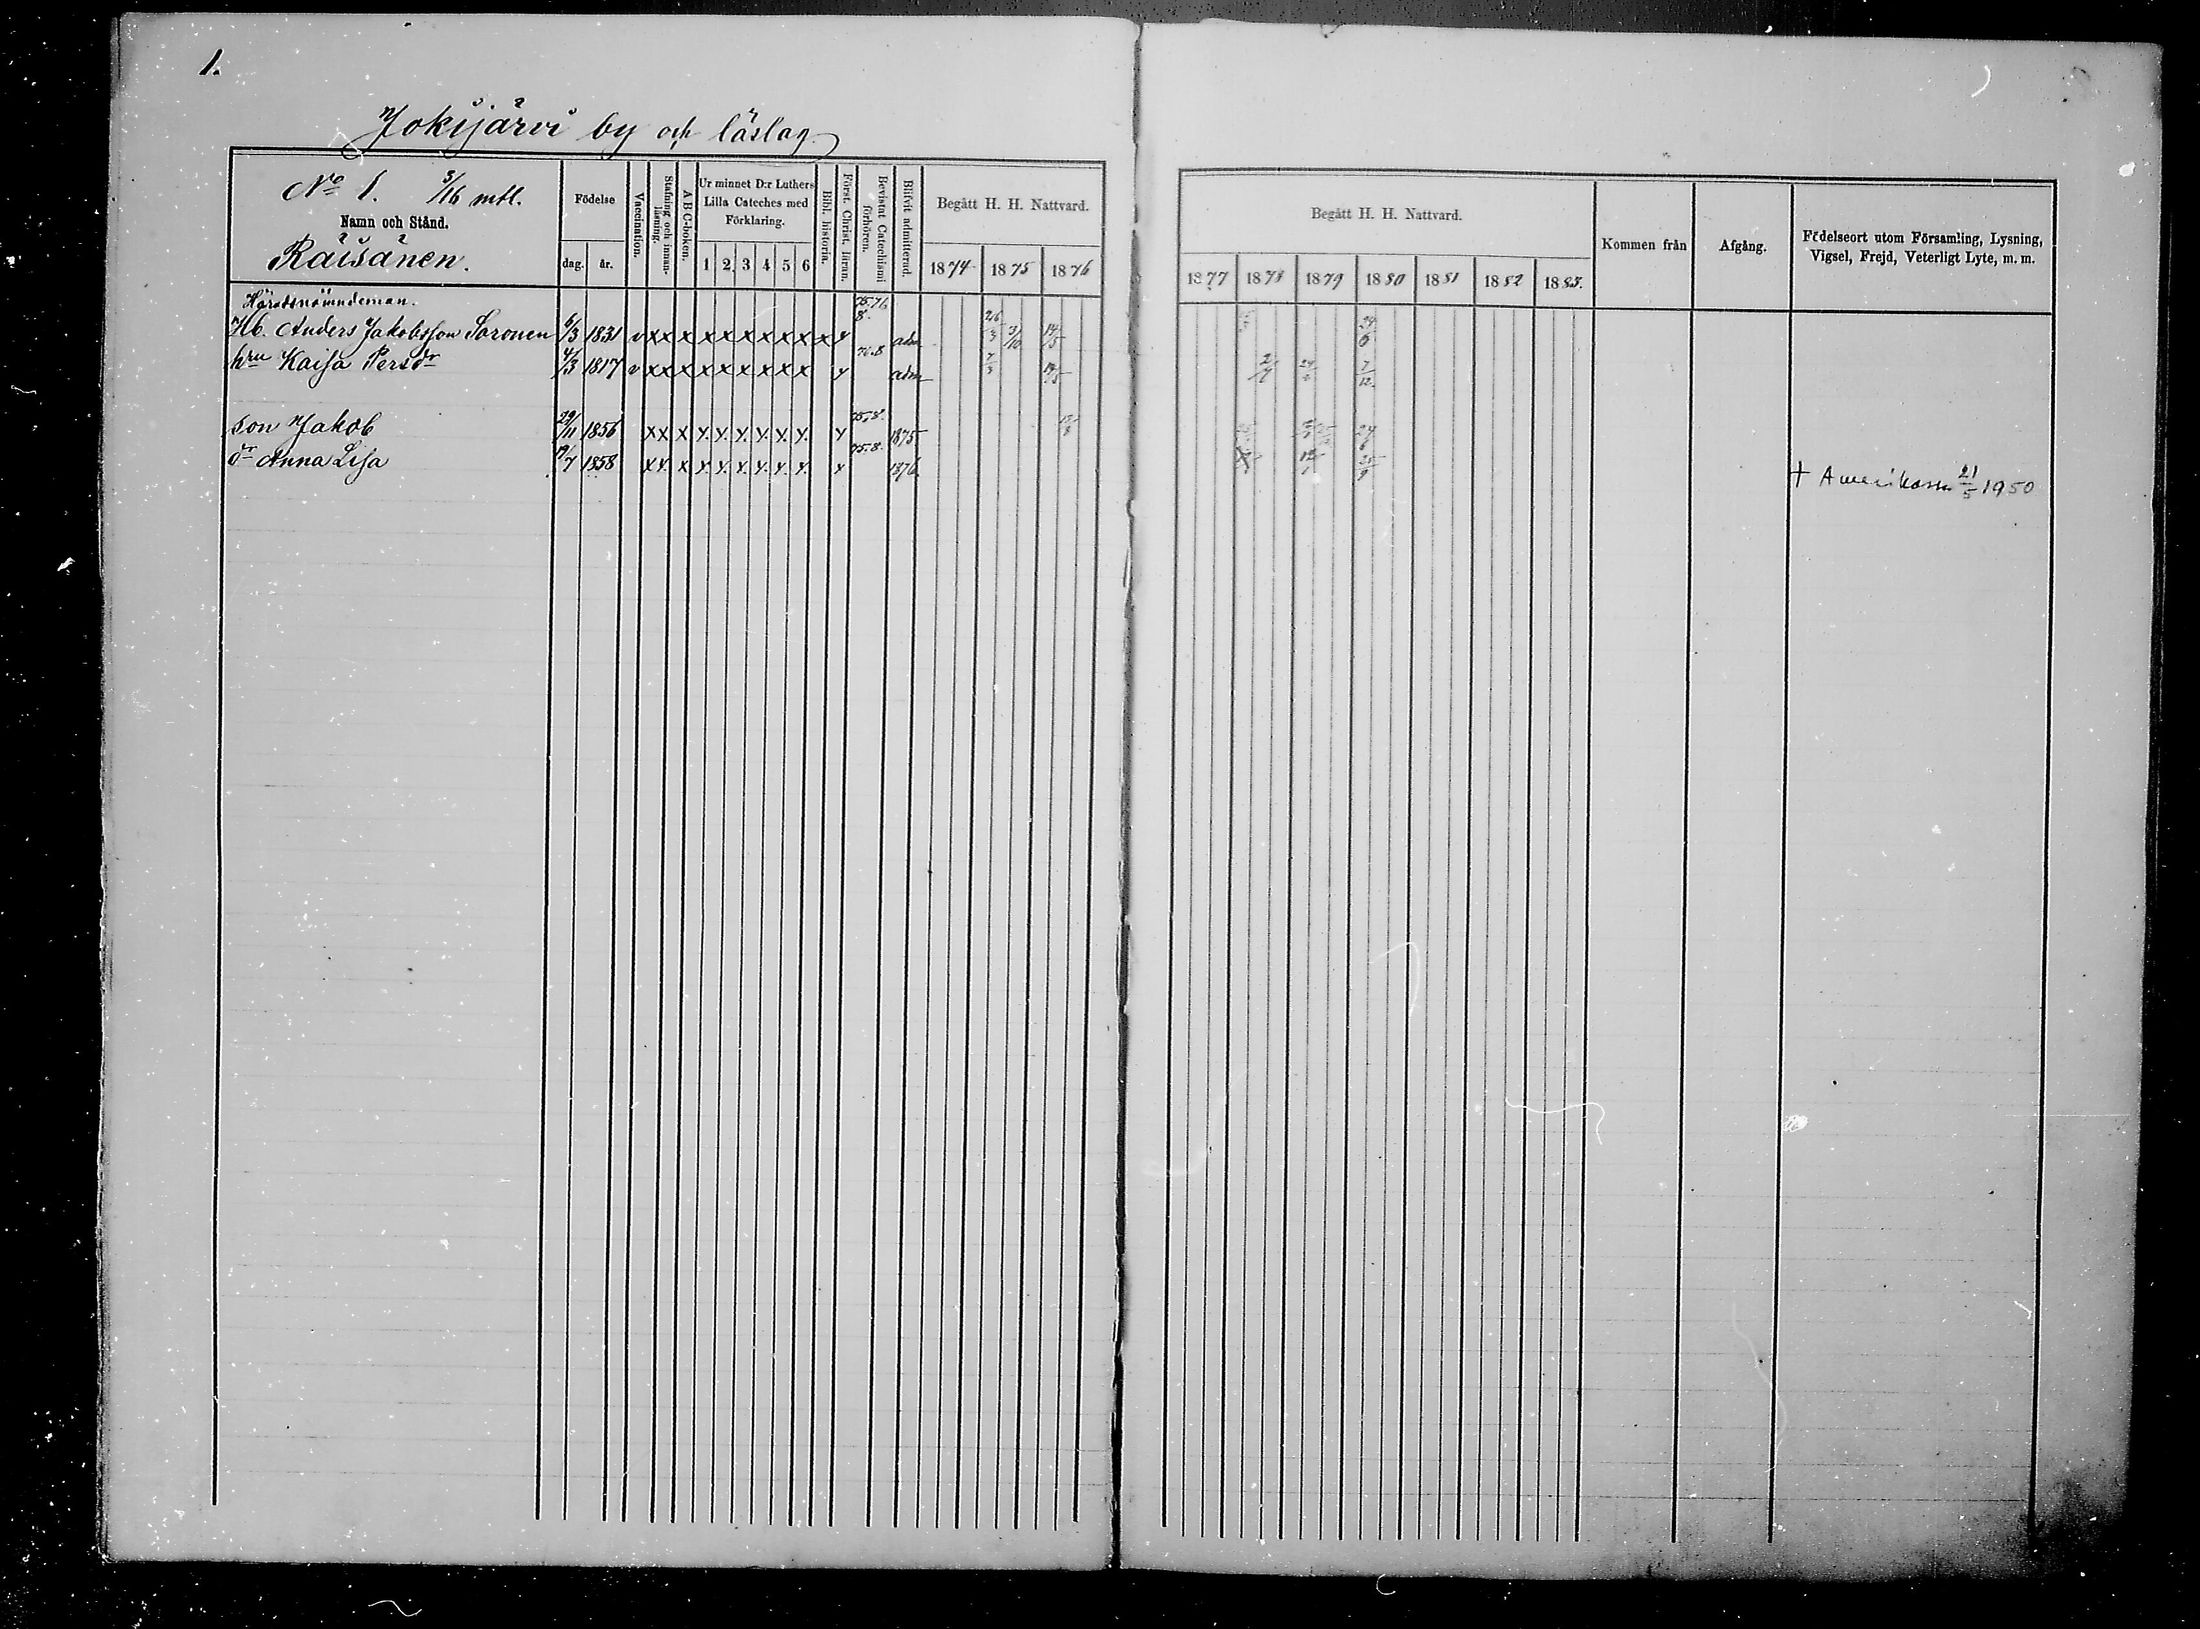 1.
Jokijärvi by och läslag.
No 1. 3/16 mtl.
Namn och Stånd.
Räisänen.
Födelse
dag. år.
Vaccination.
Stafning och innan-läsning.
A B C-boken.
Ur minnet D:r Luthers
Lilla Cateches med
Förklaring.
1 2 3 4 5 6
Bibl. historia.
Först. Christ. läran.
Bevistat Catechismi förhören.
Blifvit admitterad.
Begått H. H. Nattvard.
1874 1875 1876
Begått H. H. Nattvard.
1877 1878 1879 1880 1881 1882 1883.
Kommen från
Afgång.
Födelseort utom Församling, Lysning,
Vigsel, Frejd, Veterligt Lyte, m. m.
Häradsnämndeman.
Hb. Anders Jakobsson Soronen 6/3 1831 v x x x x x x x x x x 4 75.76 8. adm 26/3 3/10 14/5 24/6
hru Kaisa Persdr 4/3 1817 v x x x x x x x x x 4 76.8 adm 7/3 14/5 2/7 7/12
son Jakob 29/11 1856 x x x x x x x x x 4 75.8. 1875 24/6
dr Anna Lisa 19/7 1858 x x x x x x x x x 4 75.8. 1876 25/9 † Amerikassa 21/5 1950